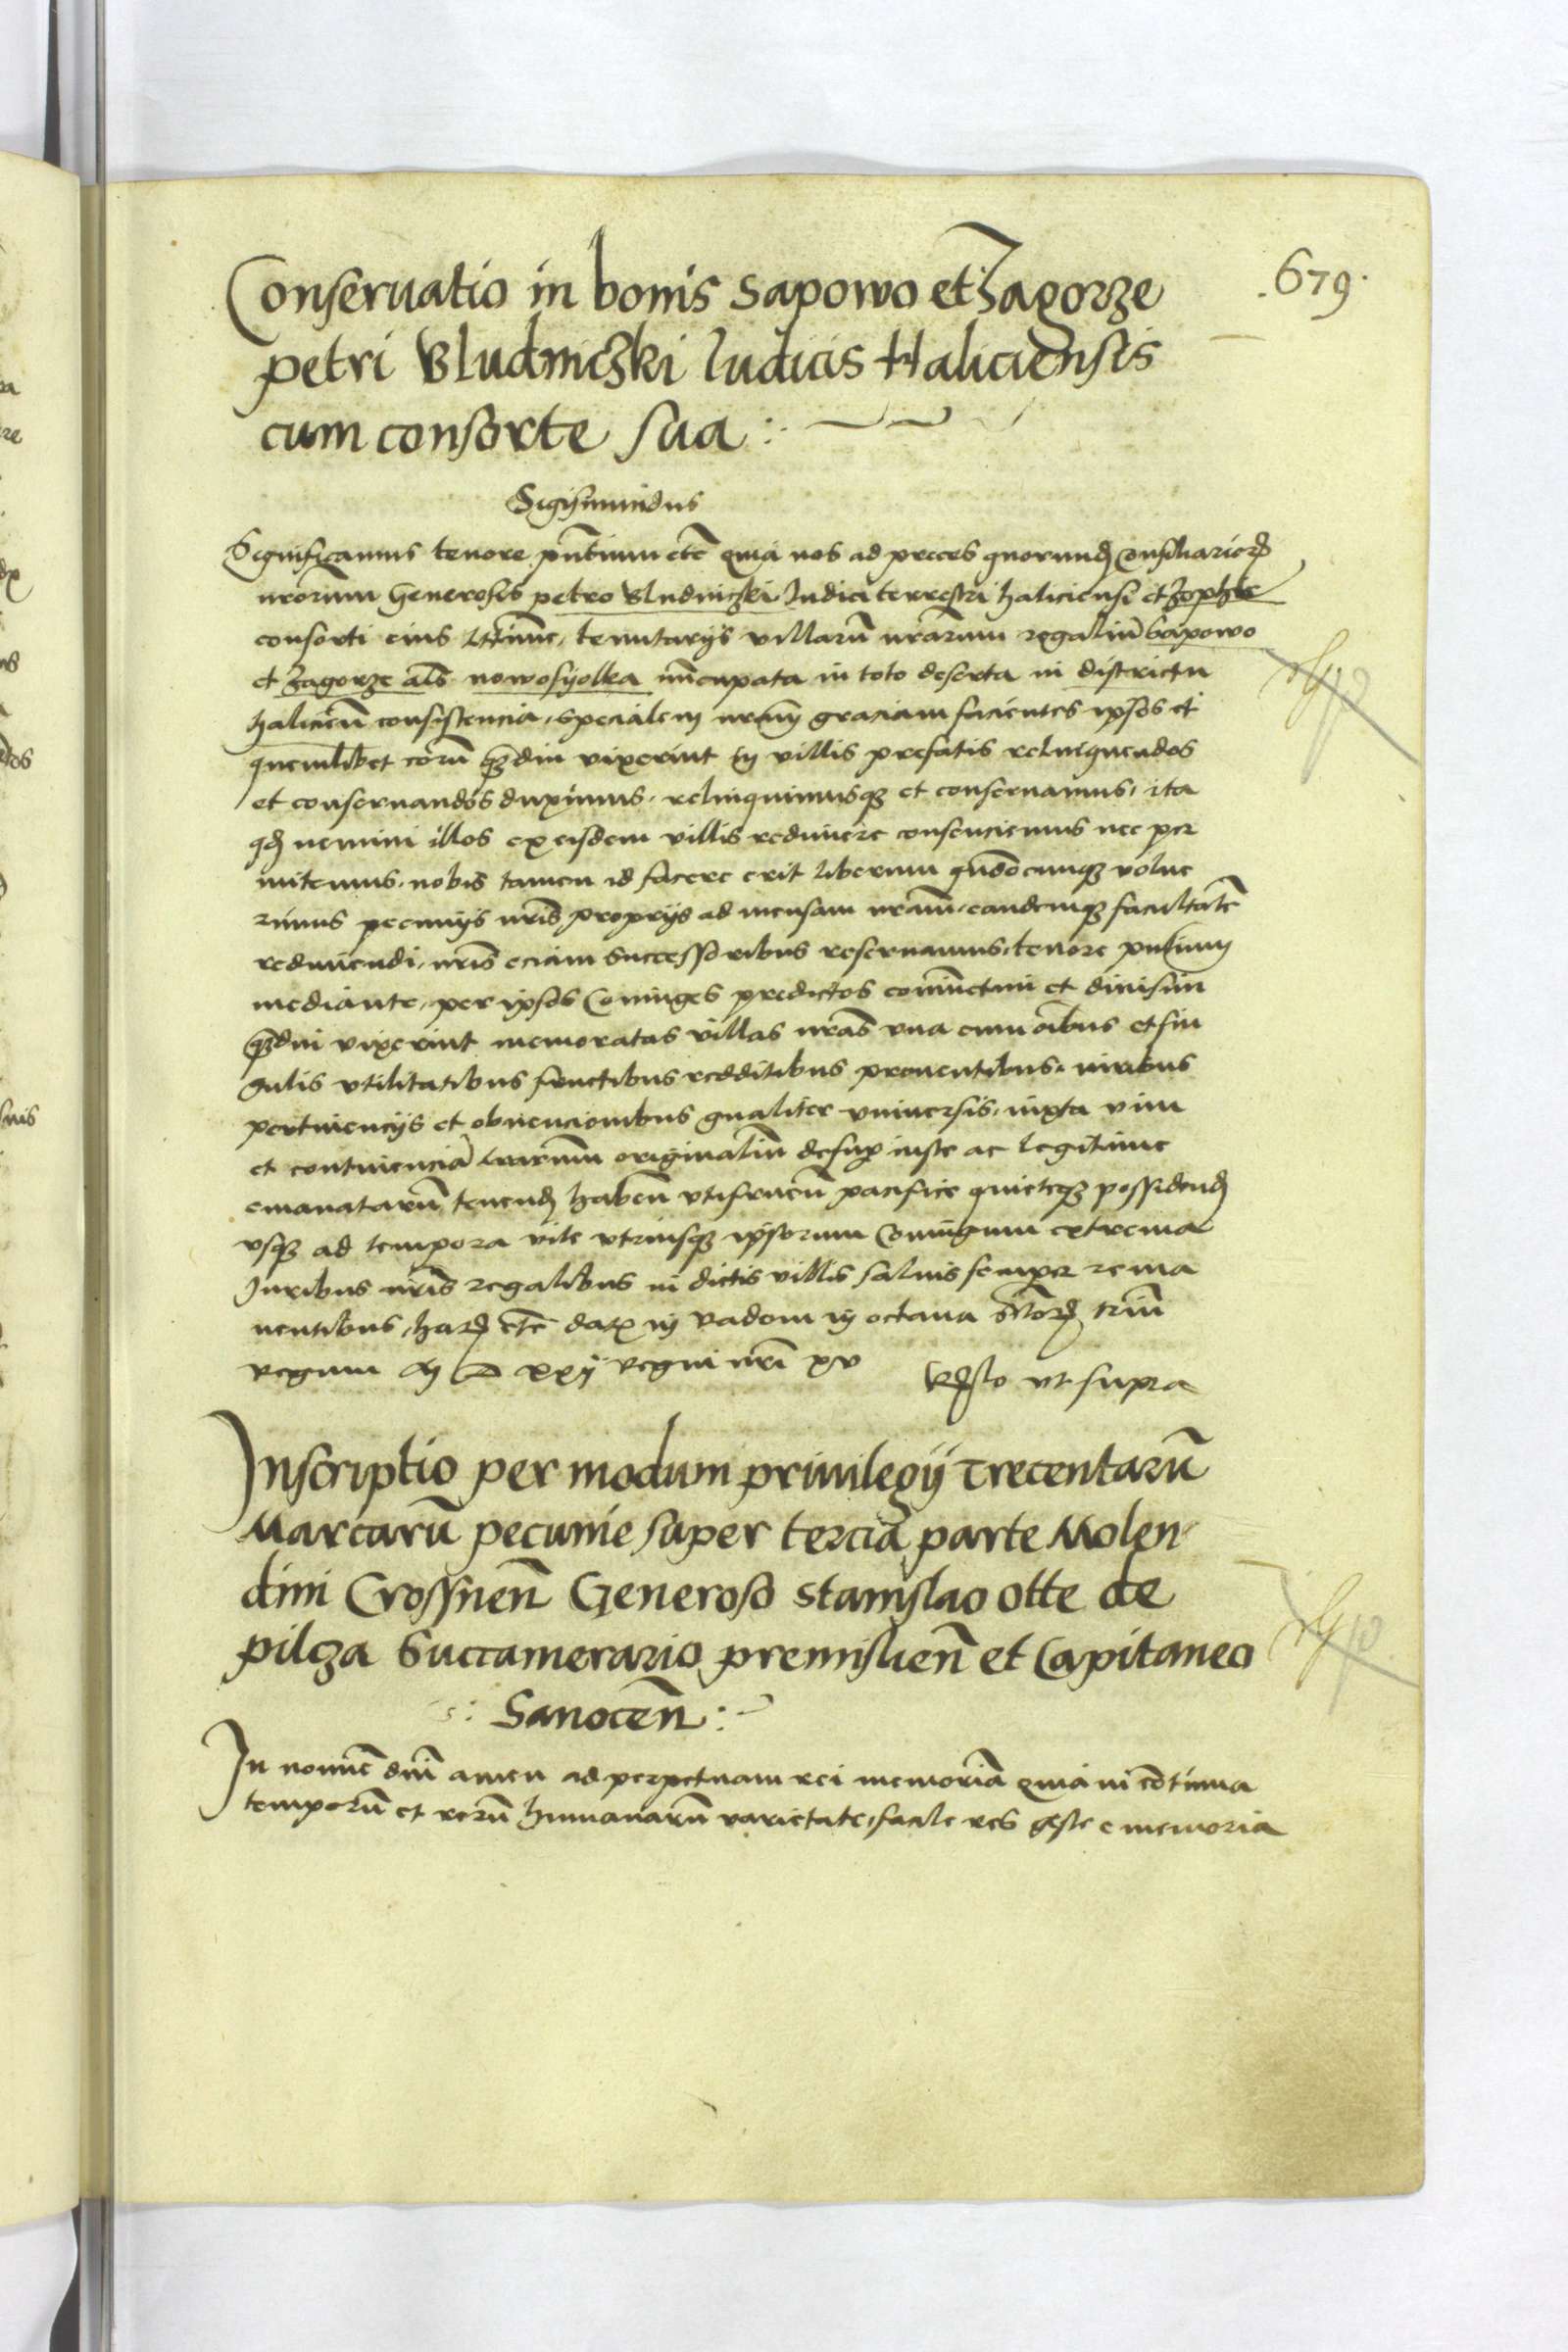 .679.
Conseruatio in bonis Sapowo et Zagorze
petri Bludniczki Iudicis Haliciensis
cum consorte sua :~
Sigismundus
Significamus tenore pñtium etc̃ quia nos ad preces quorundꝫ Consiliarioꝝ
nrõrum Generosis petro Bludniczki Iudici terrestri haliciensi et Zophie
consorti eius ltĩme, tenutarijs villarũ nrãrum regaliũ Sapowo
et Zagorze als̃ nowosyolka nũcupata in toto deserta in districtu
halicieñ consistencia, specialem nrãm graciam facientes ipsos et
quemlibet eorũ qᷓdiu vixerint in villis prefatis relinquendos
et conseruandos duximus, relinquimusqꝫ et conseruamus, ita
qꝫ nemini illos ex eisdem villis redimere consenciemus nec per
mitemus, nobis tamen id facere erit liberum qñdocumqꝫ volue
rimus pecunijs nrĩs proprijs ad mensam nrãm, eandemqꝫ facultatẽ
redimendi, nrĩs eciam Successoribus reseruamus, tenore pñtium
mediante, per ipsos Coniuges predictos coniunctim et diuisim
qᷓdiu vixerint memoratas villas nrãs vna cum oĩbus et sin
gulis vtilitatibus fructibus redditibus prouentibus, iuribus
pertinencijs et obuencionibus qualiter vniuersis, iuxta vim
et continenciã lrãrum originaliũ desup̱ iuste ac legitime
emanatarũ tenendꝫ habeñ vtifrueñ pacifice quieteqꝫ possidendꝫ
vsqꝫ ad tempora vite vtriusqꝫ ipsorum Coniugum extrema
Iuribus nrĩs regalibus in dictis villis saluis semper rema
nentibus, harꝝ etc̃ datꝫ in Radom in octaua Sctõrꝝ triũ
regum M D xxij regni nrĩ xv
Rᷓlo vt supra
Inscriptio per modum priuilegij trecentarũ
Marcarũ pecunie super tercia parte Molen
dini Crossneñ Generoso Stanislao Otte de
pilcza Succamerario premislieñ et Capitaneo
:Sanoceñ:~
In nomĩe dñi amen ad perpetuam rei memoriã quia in cõtinua
temporũ et rerũ humanarũ varietate, facile res geste e memoria